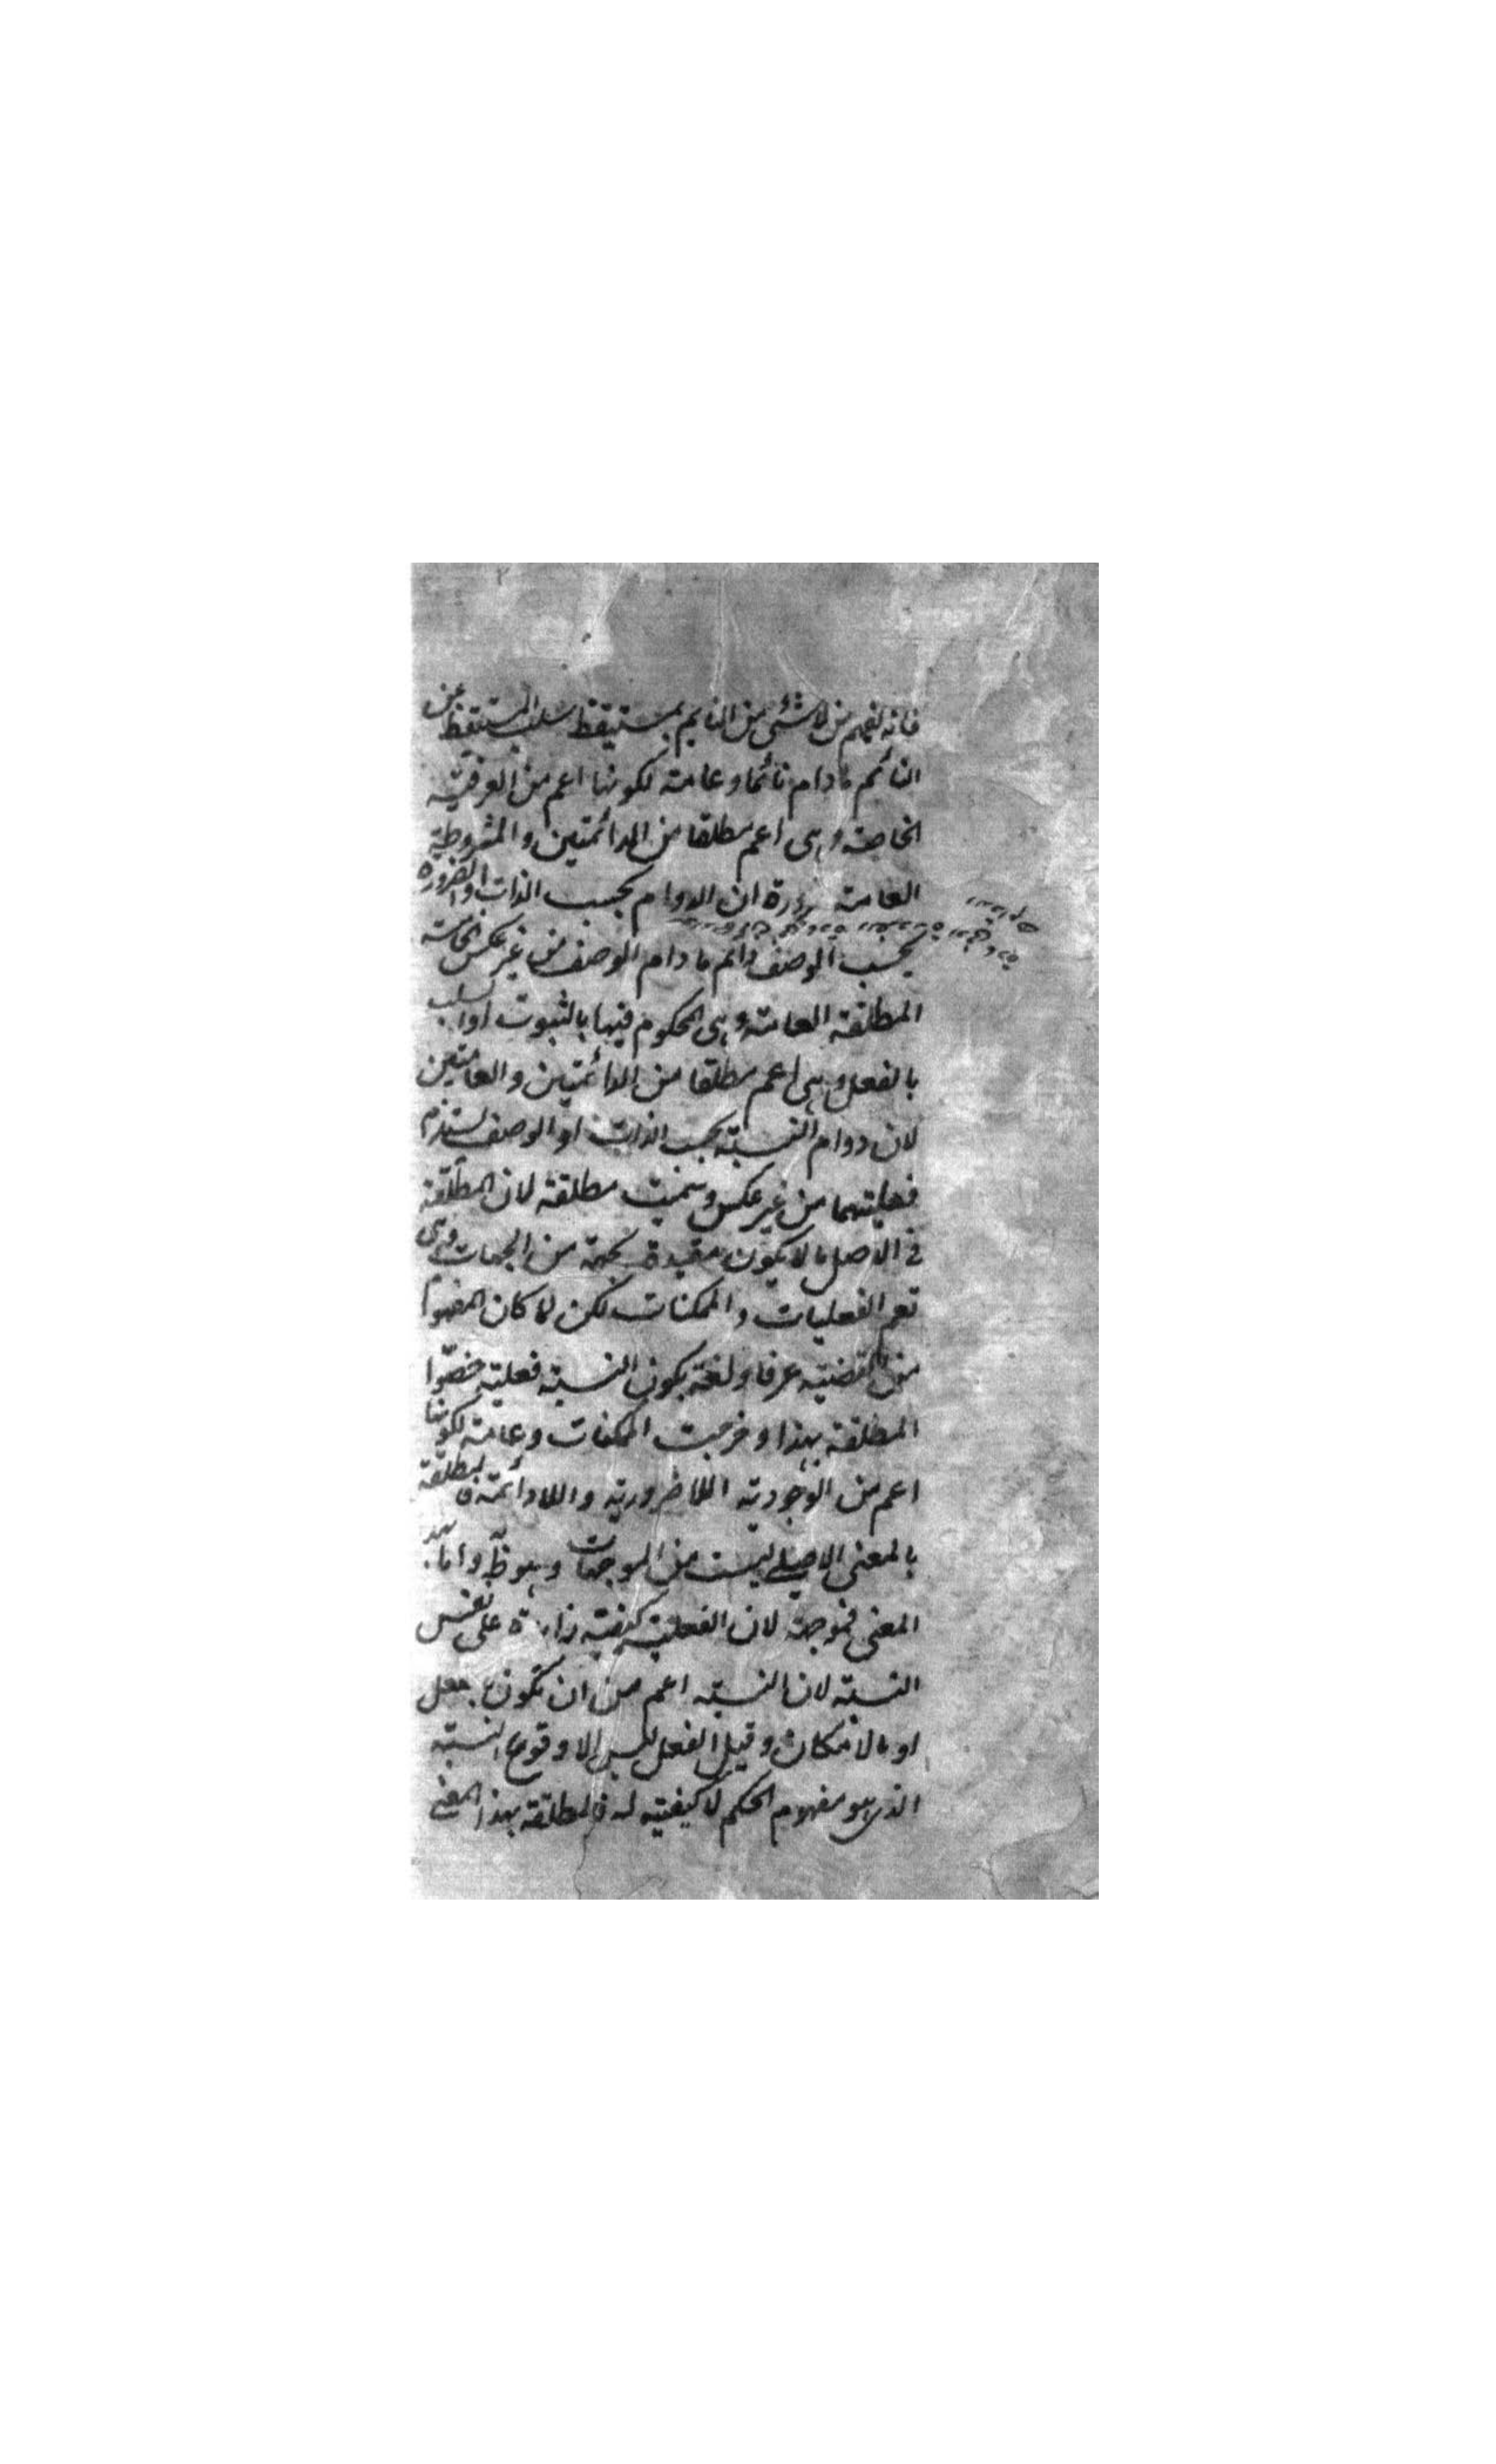 فانه يفهم من لا شئ من النايم بمستيقظ سلب المستيقظ عن
النائم ما دام نائما وعامة لكونها اعم من العرفية
الخاصة وهى اعم مطلقا من الدائمتين والمشروطة
العامة ضرورة ان الدوام بحسب الذات والضرورة
بحسب الوصف دائم ما دام الوصف من غير عكس الخامسة
المطلقة العامة وهى المحكوم فيها بالثبوت او السلب
بالفعل وهى اعم مطلقا من الدائمتين والعامتين
لان دوام النسبة بحسب الذات او الوصف يستلزم
فعليتهما من غير عكس وسميت مطلقة لان المطلقة
فى الاصل ما لا يكون مقيدة بجهة من الجهات وهى
تعم الفعليات والممكنات لكن لما كان المفهوم
من القضية عرفا ولغة يكون النسبة فعلية خصّوا
المطلقة بهذا وخرجت الممكنات وعامة لكونها
اعم من الوجودية اللاضرورية واللادائمة فالمطلقة
بالمعنى الاصلى ليست من الموجهات وهو ظ واما بهذ
المعنى فموجهة لان الفعلية كيفية زايدة على نفس
النسبة لان النسبة اعم من ان تكون بالفعل
او بالامكان وقيل الفعل ليس الا وقوع النسبة
الذى هو مفهوم الحكم لا كيفية له فالمطلقة بهذا المعنى